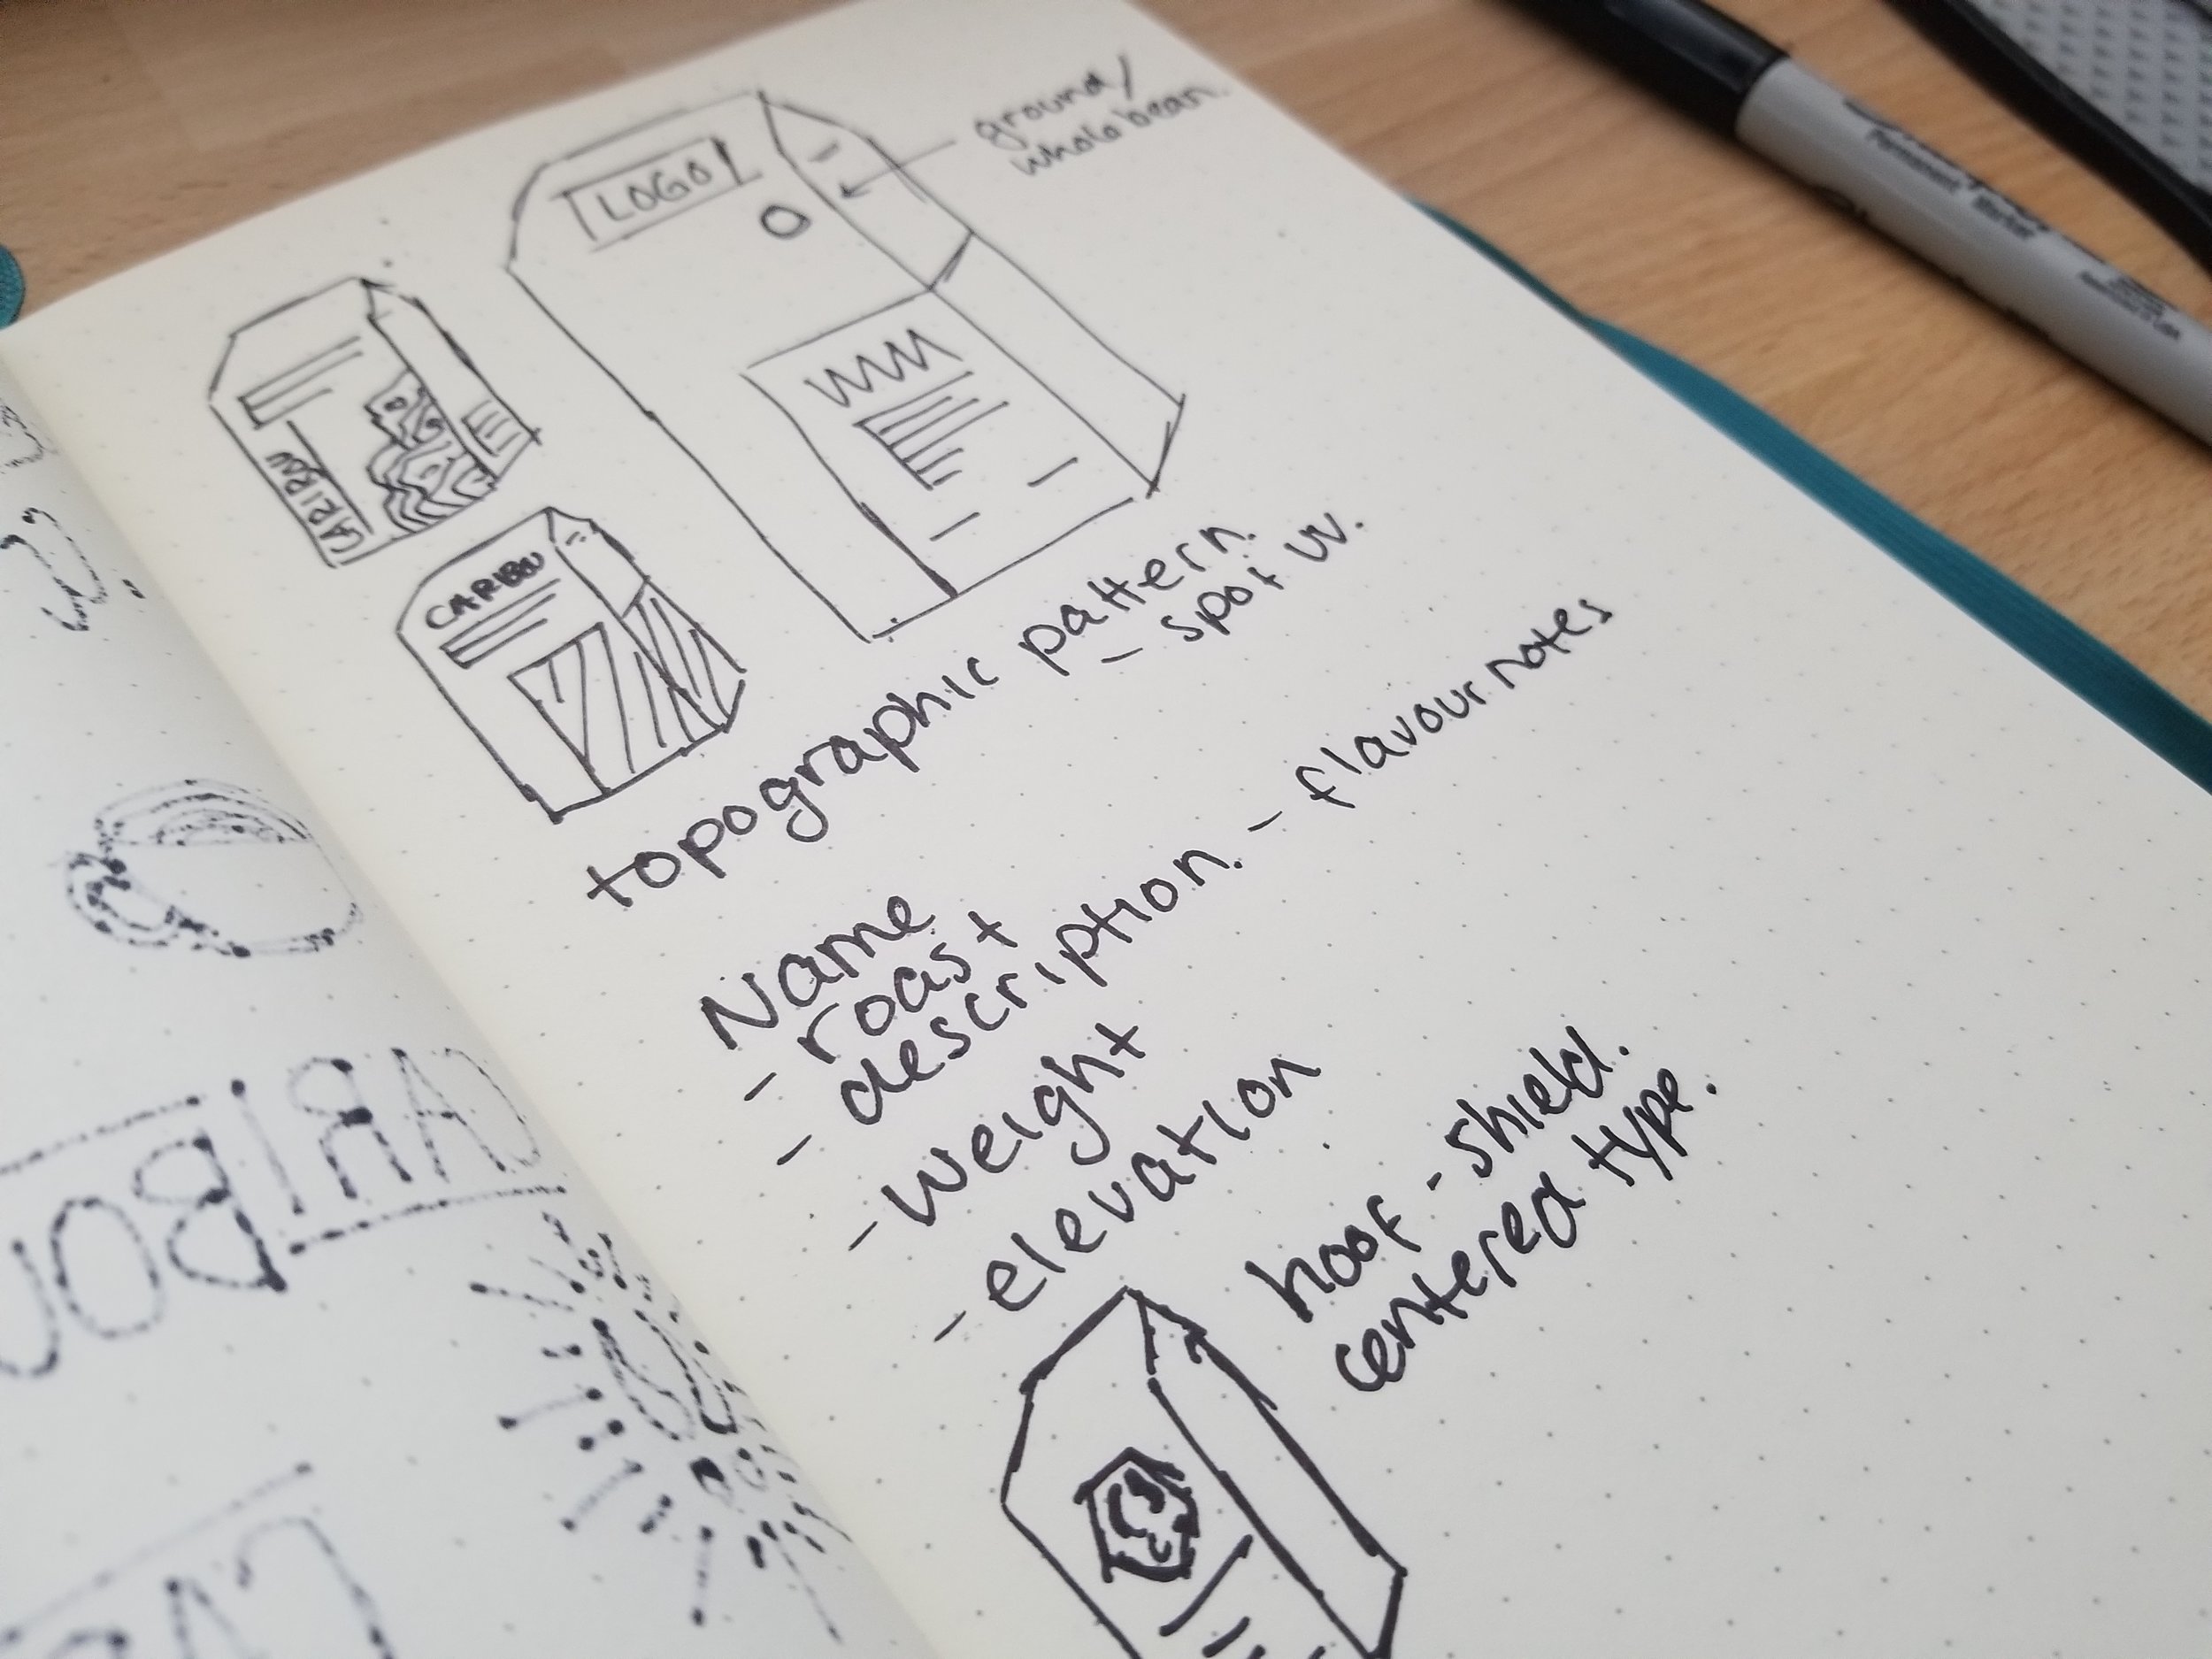 LOGO
ground/
whole bean.
CARIBOU
CARIBOU
topographic pattern.
- spot uv.
Name
- roast
- description. - flavour notes
- weight
- elevation
hoof - shield.
centered type.
Permanent
Marker
CARI
BOU